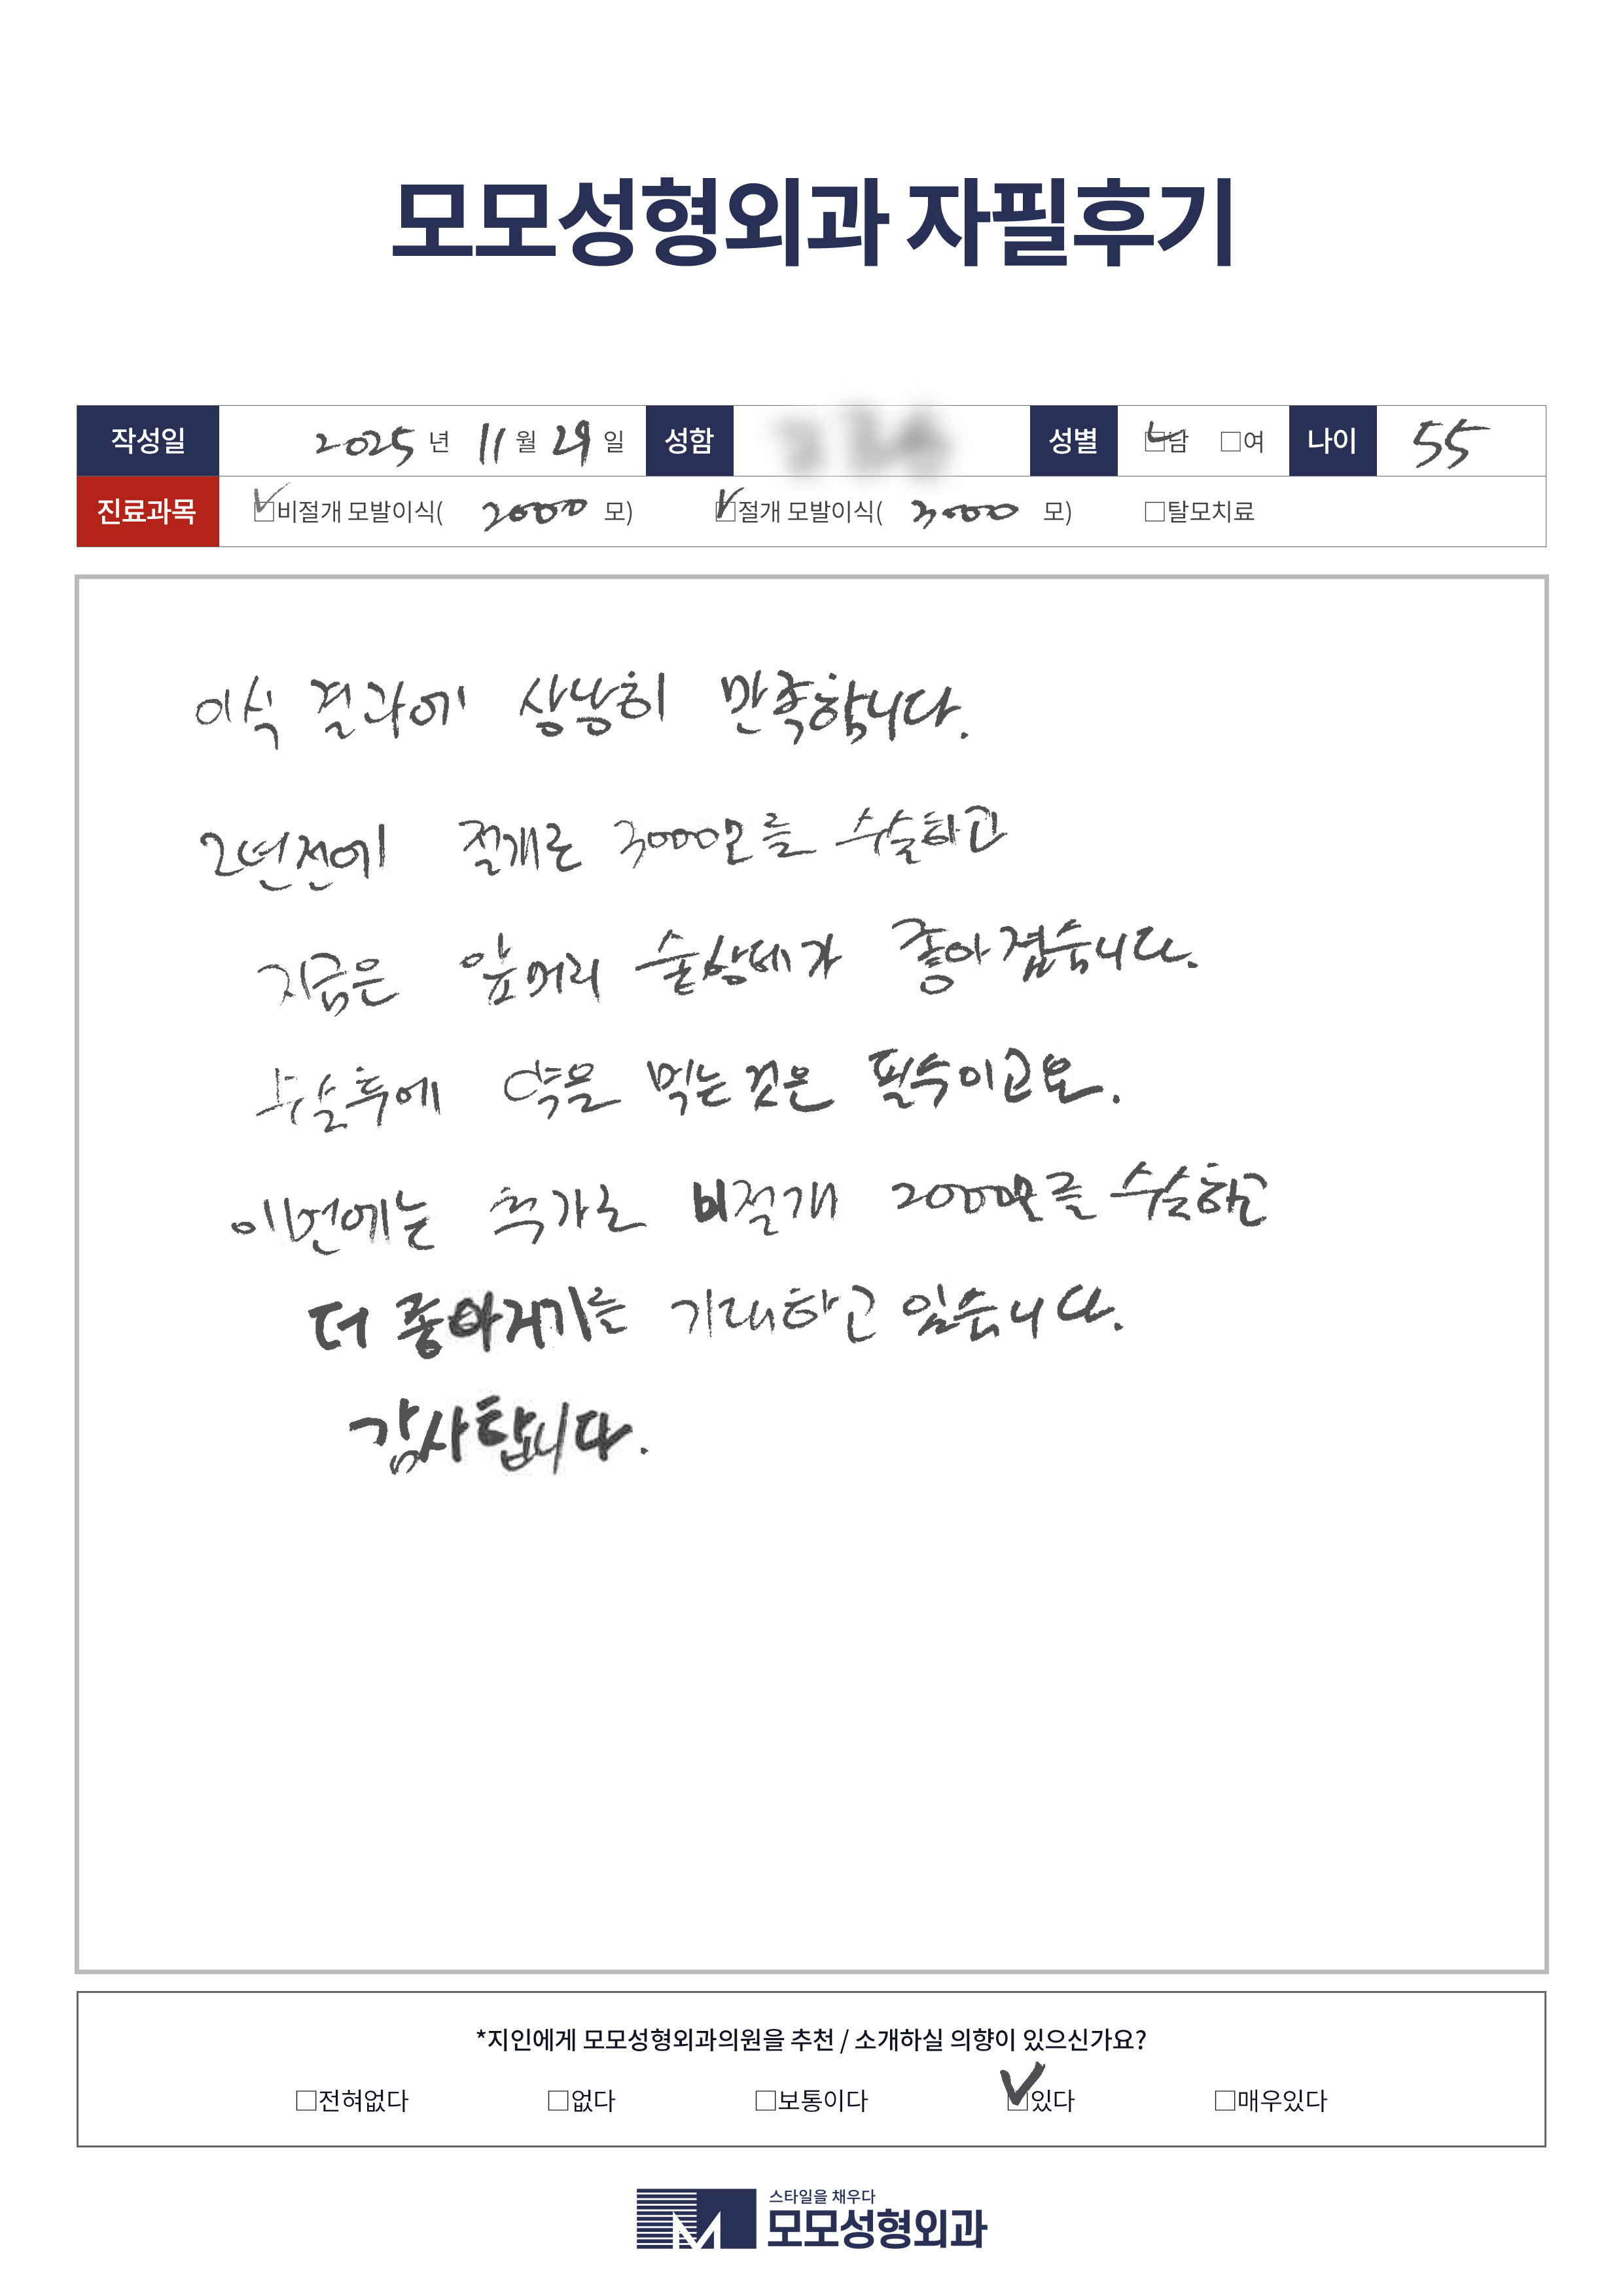 모모성형외과 자필후기
작성일 2025 년 11 월 29 일 성함 성별 □남 □여 나이 55
진료과목 □비절개 모발이식( 2000 모) □절개 모발이식( 3000 모) □탈모치료
이식 결과에 상당히 만족합니다.
2년전에 절개로 3000모를 수술하고
지금은 앞머리 술상태가 좋아졌습니다.
수술후에 약을 먹는것은 필수이고요.
이번에는 추가로 비절개 2000모를 수술하고
더 좋아지기를 기대하고 있습니다.
감사합니다.
*지인에게 모모성형외과의원을 추천 / 소개하실 의향이 있으신가요?
□전혀없다 □없다 □보통이다 □있다 □매우있다
스타일을 채우다
모모성형외과